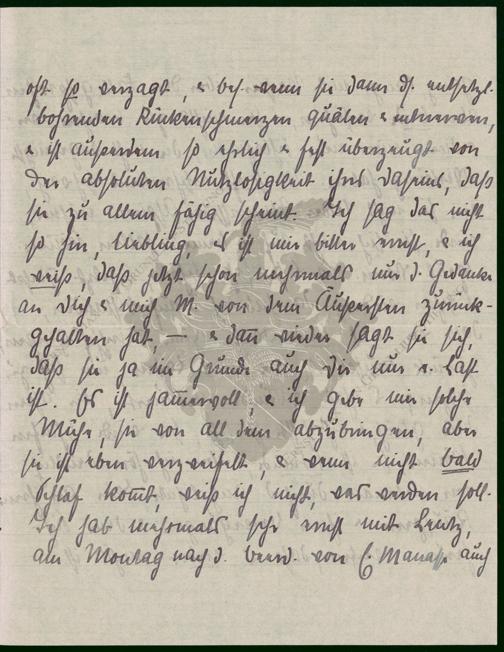 oft so verzagt, & bes. wenn sie dann ds. entsetzl.
bohrenden Rückenschmerzen quälen & entnerven,
& ist außerdem so ehrlich & fest überzeugt von
der absoluten Nutzlosigkeit ihres Daseins, daß
sie zu allem fähig scheint. Ich sag das nicht
so hin, Liebling, es ist mir bitter ernst, & ich
weiß, daß jetzt schon mehrmals nur d. Gedanke
an Dich & mich M. von dem Äußersten zurück-
gehalten hat — & dann wieder sagt sie sich,
daß sie ja im Grunde auch Dir nur e. Last
ist. Es ist jammervoll & ich gebe mir solche
Mühe, sie von all dem abzubringen, aber
sie ist eben verzweifelt, & wenn nicht bald
Schlaf kommt, weiß ich nicht, was werden soll.
Ich hab mehrmals sehr ernst mit Lentz,
am Montag nach d. beerd. von C. Manass. auch